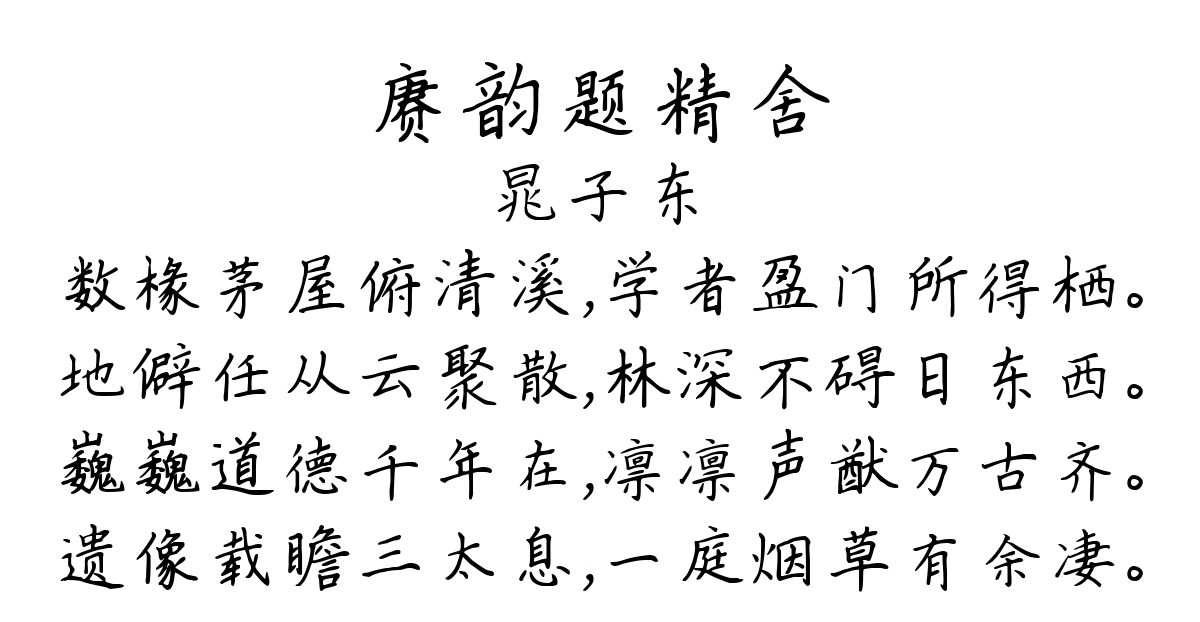 赓韵题精舍
晁子东
数椽茅屋俯清溪,学者盈门所得栖。
地僻任从云聚散,林深不碍日东西。
巍巍道德千年在,凛凛声猷万古齐。
遗像载瞻三太息,一庭烟草有余凄。